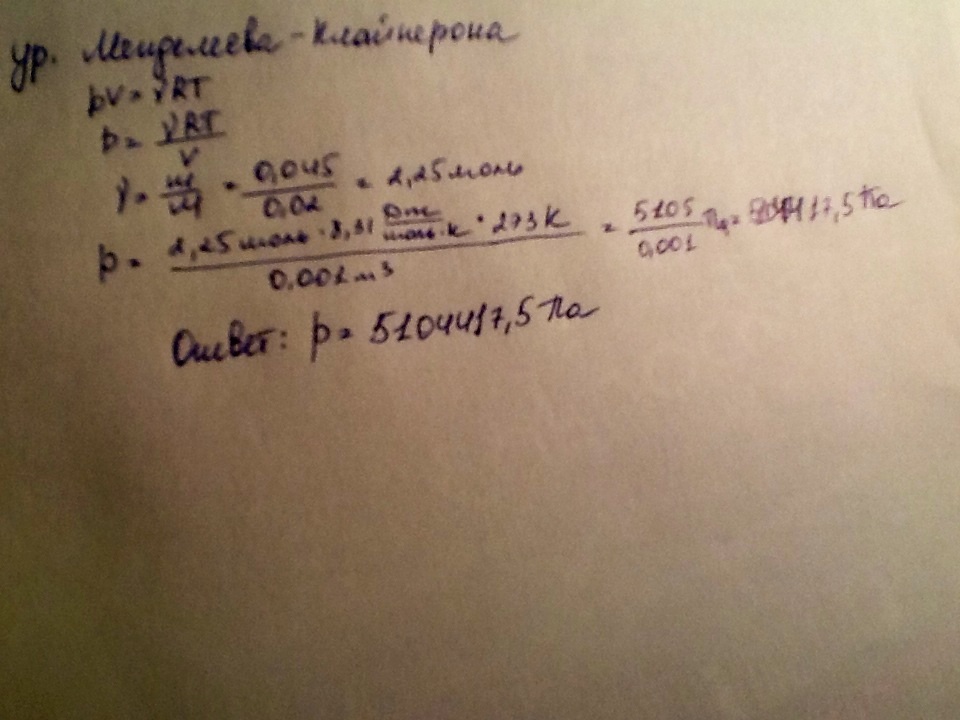 ур. Менделеева-Клайперона
pV = νRT
p = νRT/V
ν = m/M = 0,045/0,02 = 2,25 моль
p = 2,25 моль · 8,31 Дж/моль·К · 273 К / 0,001 м³ = 5105/0,001 Па = 5104417,5 Па
Ответ: p = 5104417,5 Па